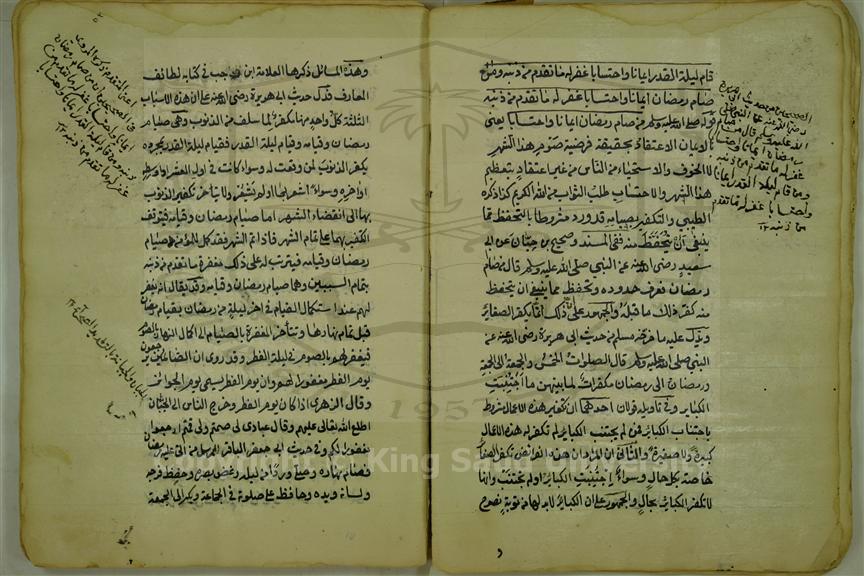 قام ليلة القدر ايمانا واحتسابا غفر له ما تقدم من ذنبه ومن
صام رمضان ايمانا واحتسابا غفر له ما تقدم من ذنبه
قوله صلى الله عليه وسلم من صام رمضان ايمانا واحتسابا يعني
بالايمان الاعتقاد بحقيقة فرضية صوم هذا الشهر
لا الخوف والاستحياء من الناس من غير اعتقاد بتعظيم
هذا الشهر والاحتساب طلب الثواب من الله الكريم كذا ذكره
الطيبي والتكفير بصيامه قد ورد مشروطا بالتحفظ مما
ينبغي ان يتحفظ منه ففي المسند وصحيح بن حبان عن ابي
سعيد رضي الله عنه عن النبي صلى الله عليه وسلم قال من صام
رمضان فعرف حدوده وتحفظ مما ينبغي ان يتحفظ
منه كفر ذلك ما قبله والجمهور على ان ذلك انما يكفر الصغاير
ويدل عليه ما خرجه مسلم من حديث ابي هريرة رضي الله عنه عن
النبي صلى الله عليه وسلم قال الصلوات الخمس والجمعة الى الجمعة
ورمضان الى رمضان مكفرات لما بينهن ما اجتنبت
الكباير وفي تاويله قولان احدهما ان تكفير هذه الاعمال مشروط
باجتناب الكباير فمن لم يجتنب الكباير لم تكفر له هذه الاعمال
كبيرة ولا صغيرة والثاني ان المراد ان هذه الفرائض تكفر الصغاير
خاصة بكل حال وسواء اجتنبت الكباير او لم يجتنب وانها
لا تكفر الكباير بحال والجمهور على ان الكباير لابد لها من توبة نصوح
الصحيحين من حديث ابي هريرة
رضي الله عنه عن النبي صلى
الله عليه وسلم قال من صام
رمضان ايمانا واحتسابا
غفر له ما تقدم من ذنبه
ومن قام ليلة القدر ايمانا
واحتسابا غفر له ما تقدم
من ذنبه
وهذه المسائل ذكرها العلامة ابن رجب في كتابه لطائف
المعارف فدل حديث ابي هريرة رضي الله عنه على ان هذه الاسباب
الثلثة كل واحد منها مكفر لما سلف من الذنوب وهي صيام
رمضان وقيامه وقيام ليلة القدر فقيام ليلة القدر بمجرده
يكفر الذنوب لمن وقعت له وسواء كانت في اول العشر او اوسطه
او اخره وسواء اشعر بها او لم يشعر ولا يتاخر تكفير الذنوب
بها الى انقضاء الشهر اما صيام رمضان وقيامه فيتوقف
التكفير بهما على تمام الشهر فاذا تم الشهر فقد كمل للمؤمن صيام
رمضان وقيامه فيترتب له على ذلك مغفرة ما تقدم من ذنبه
بتمام السببين وهما صيام رمضان وقيامه وقد يقال انه يغفر
لهم عند استكمال القيام في اخر ليلة من رمضان بقيام رمضان
قبل تمام نهارها وتتأخر المغفرة بالصيام الى اكمال النهار بالصوم
فيغفر لهم بالصوم في ليلة الفطر وقد روي ان الصائمين يرجعون
يوم الفطر مغفورا لهم وان يوم الفطر يسمى يوم الجوائز
وقال الزهري اذا كان يوم الفطر وخرج الناس الى الجبان
اطلع الله تعالى عليهم وقال عبادي لي صمتم ولي قمتم ارجعوا
مغفورا لكم وفي حديث ابي جعفر الباقر المرسل من اتى عليه رمضان
فصام نهاره وصلى وردا من ليله وغض بصره وحفظ فرجه
ولسانه ويده وحافظ على صلوته في الجماعة وبكر الى الجمعة
1957
King Saud University